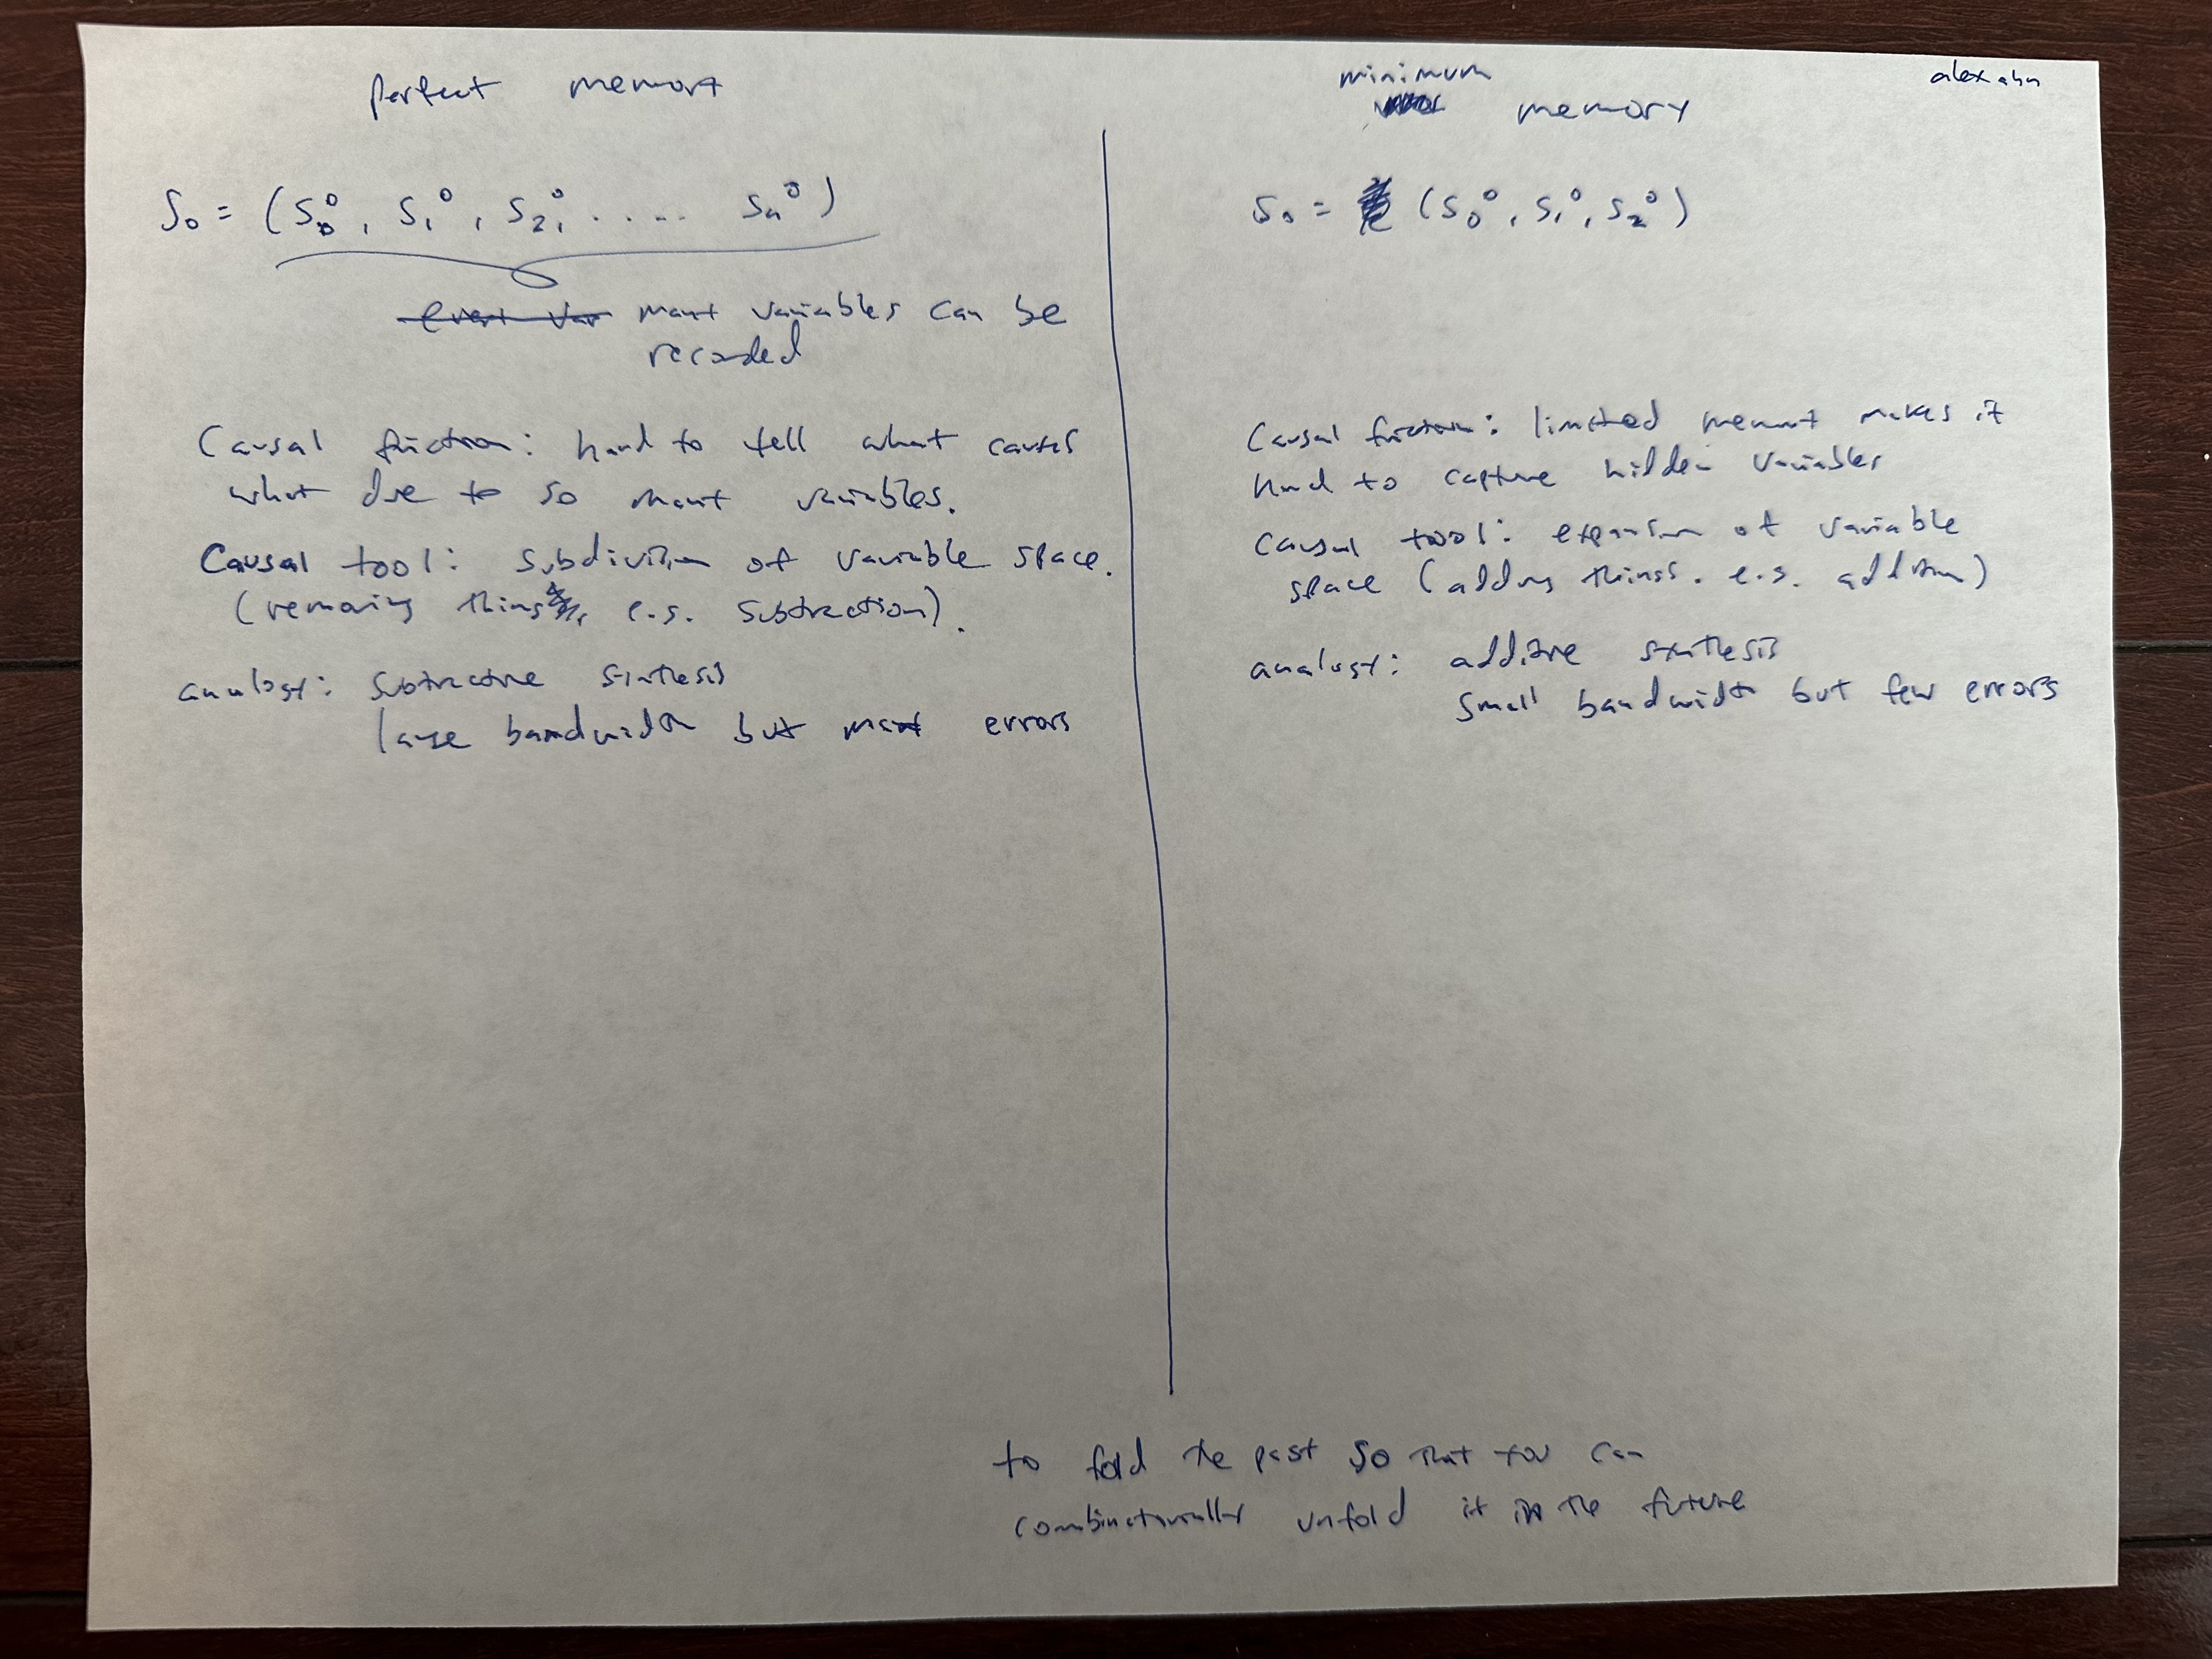 perfect memory
S₀ = (S₀⁰, S₁⁰, S₂⁰, ..... Sₙ⁰)
many variables can be
recorded
Causal friction: hard to tell what causes
what due to so many variables.
Causal tool: subdivision of variable space.
(removing things, e.g. subtraction).
analogy: subtractive sinthesis
large bandwidth but many errors
alex ahn
minimum
memory
S₀ = (S₀⁰, S₁⁰, S₂⁰)
Causal friction: limited memory makes it
hard to capture hidden variables
causal tool: expansion of variable
space (adding things. e.g. addition)
analogy: additive synthesis
small bandwidth but few errors
to fold the past so that you can
combinatorially unfold it in the future